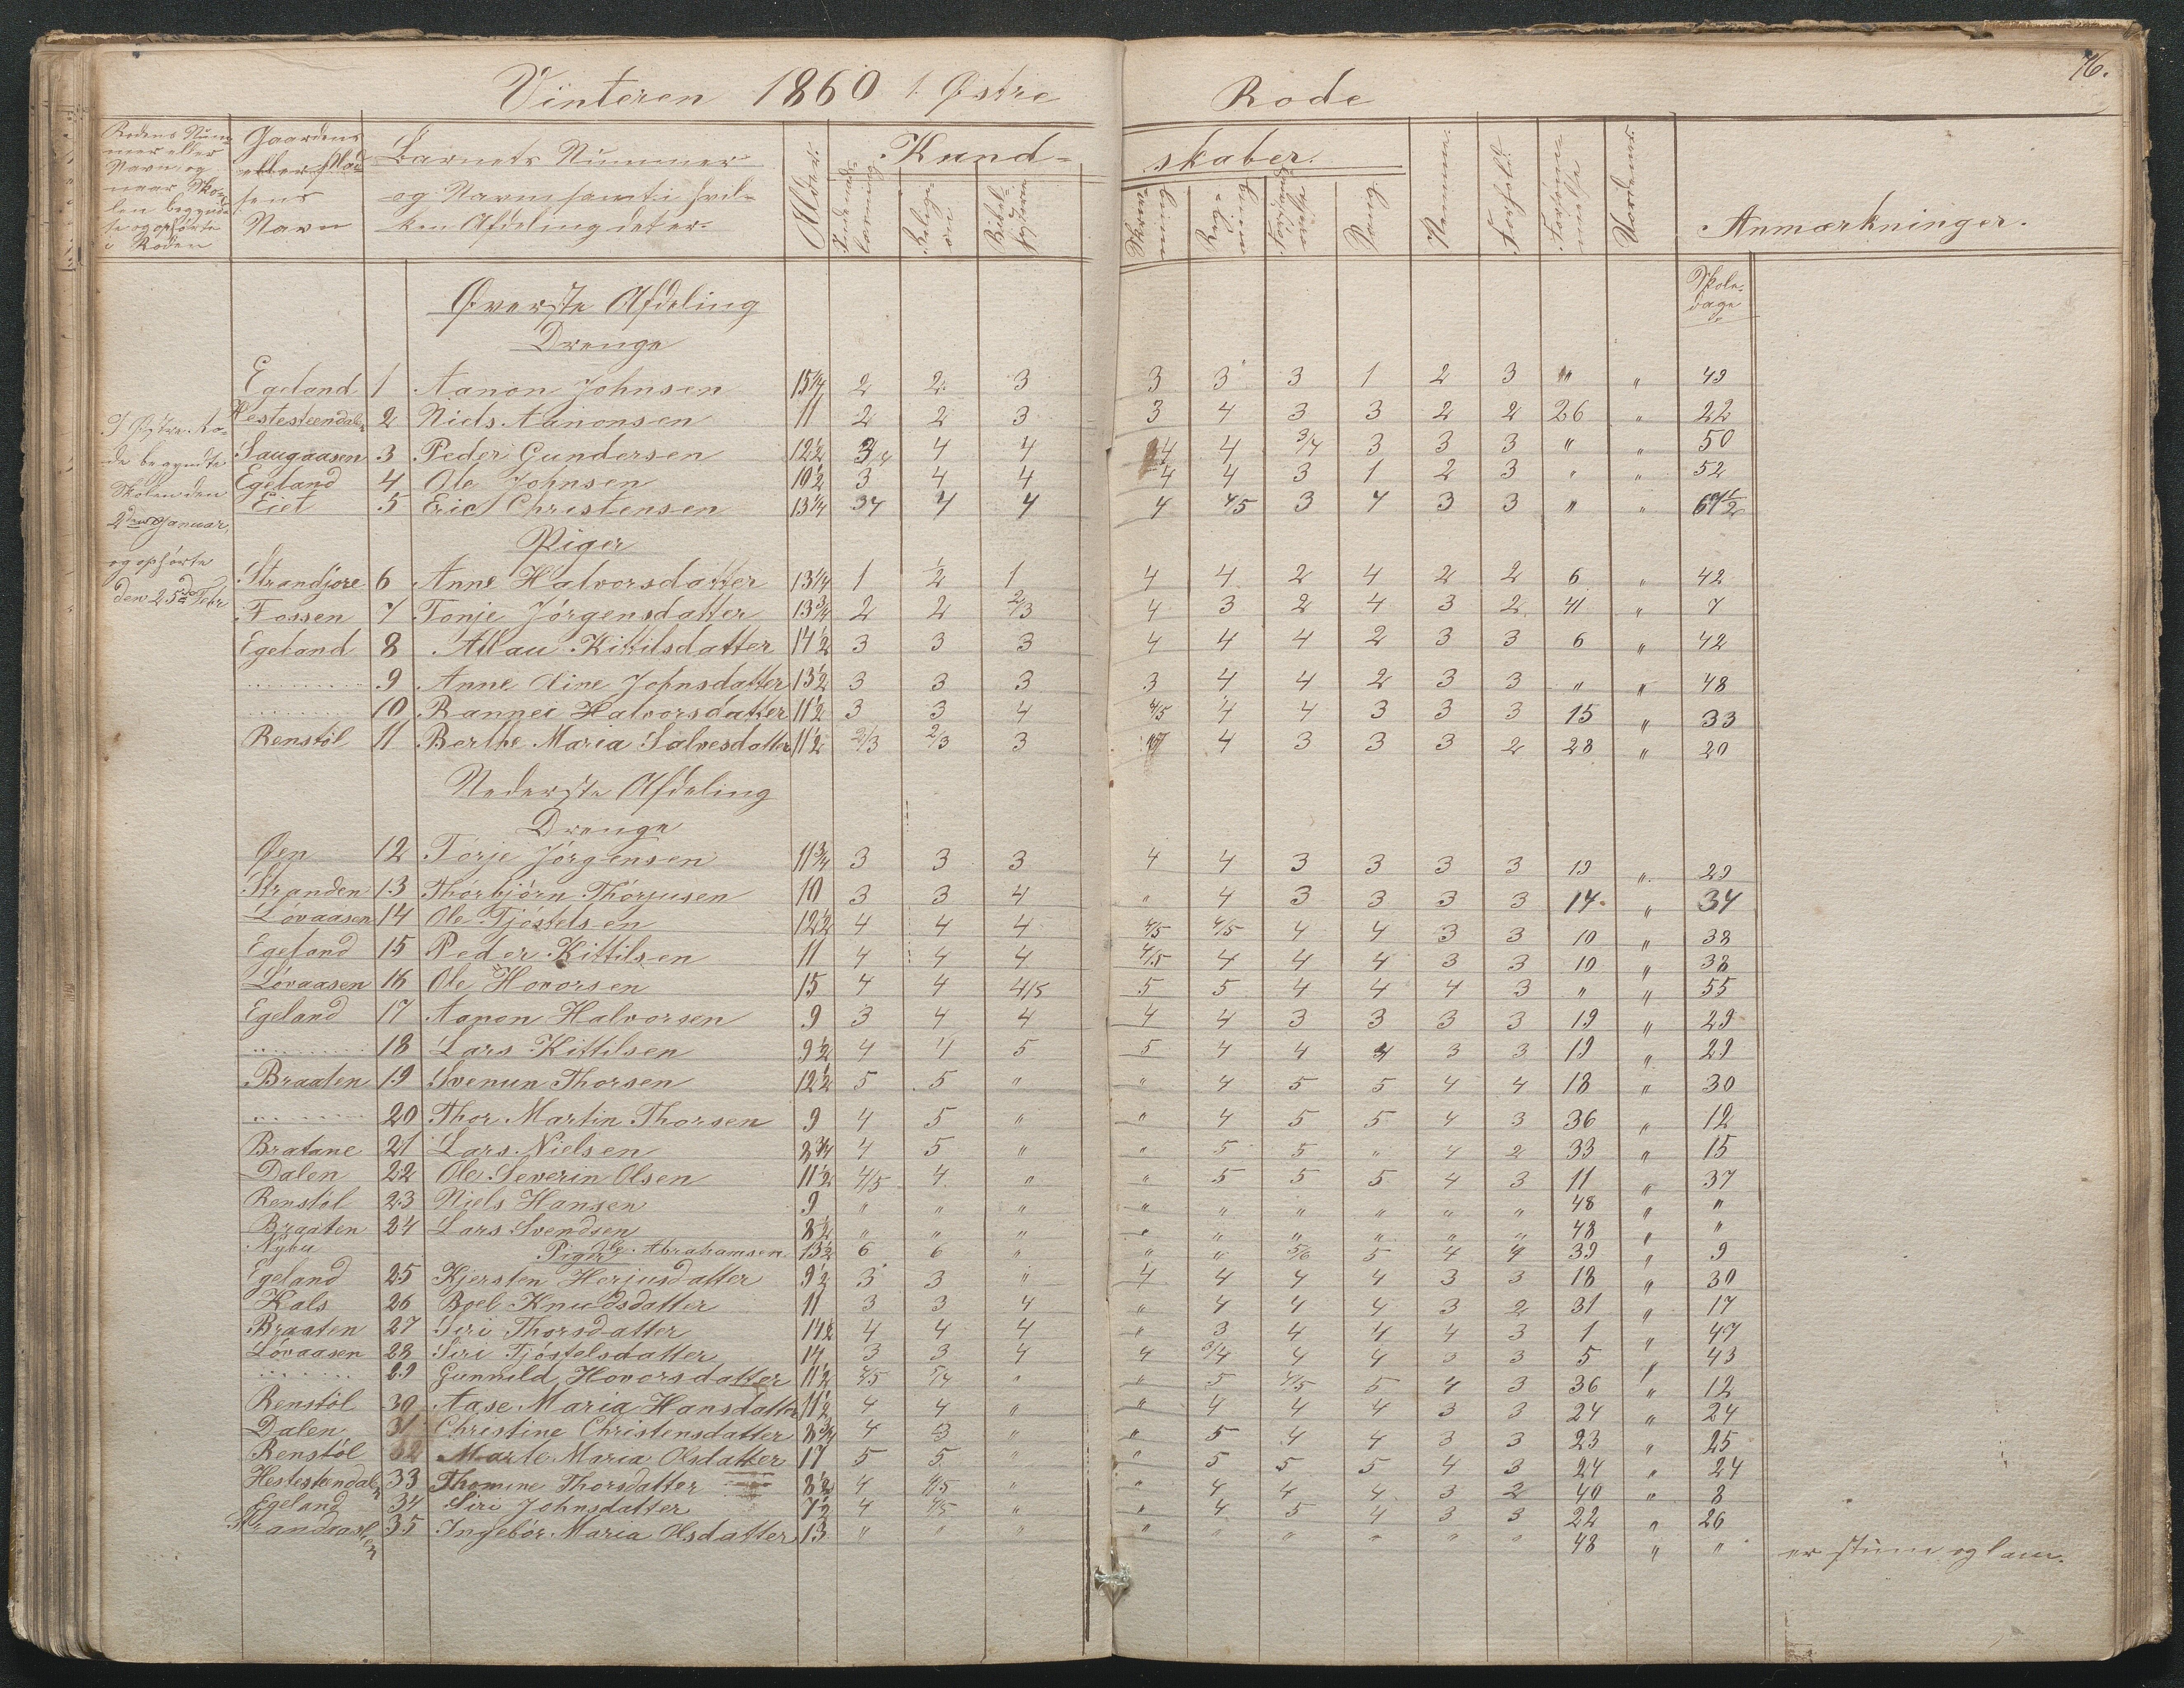 76.
Vinteren 1860 1. Østre Rode
Rodens Nummer eller Navn, og naar Skolen begyndte og ophørte i Roden
Gaardens eller Pladsens Navn
Barnets Nummer og Navn samt i hvilken Afdeling det er.
Alder.
Kundskaber.
Religion
Skrivning
Regning
Sang
Nemme.
Forhold.
Forsømmelse
Anmærkninger.
Skoledage
I Østre Rode begyndte Skolen den 2den Januar, og ophørte den 25de Febr
Øverste Afdeling
Drenge
Egeland 1 Aanon Johnsen 15 1/4 2 2 3 3 3 3 1 2 3 " " 49
Hestesteendalen 2 Niels Aanonsen 11 2 2 3 3 4 3 3 2 2 26 " 22
Saugaasen 3 Peder Gundersen 12 1/2 3/4 4 4 4 4 3/4 3 3 3 " " 50
Egeland 4 Ole Johnsen 10 1/2 3 4 4 4 4 3 1 2 3 " " 52
Eiet 5 Eric Christensen 13 1/4 34 4 4 4 4/5 3 4 3 3 " " 67 1/2
Piger
Strandjore 6 Anne Halvorsdatter 13 1/4 1 1/2 1 4 4 2 4 2 2 6 " 42
Fossen 7 Tonje Jørgensdatter 13 3/4 2 2 2/3 4 3 2 4 3 2 41 " 7
Egeland 8 Allau Kittilsdatter 14 1/2 3 3 3 4 4 4 2 3 3 6 " 42
........ 9 Anne Aine Johnsdatter 13 1/2 3 3 3 3 4 4 2 3 3 " " 48
........ 10 Rannei Halvorsdatter 11 1/2 3 3 4 4/5 4 4 3 3 3 15 " 33
Renstöl 11 Berthe Maria Salvesdatter 11 1/2 2/3 2/3 3 4 3 3 3 2 28 " 20
Nederste Afdeling
Drenge
Øen 12 Torje Jörgensen 11 3/4 3 3 3 4 4 3 3 3 3 19 " 29
Stranden 13 Thorbjörn Thorjusen 10 3 3 4 " 4 3 3 3 3 14. " 34
Lövaasen 14 Ole Tjöstelsen 12 1/2 4 4 4 4/5 4/5 4 4 3 3 10 " 38
Egeland 15 Peder Kittilsen 11 4 4 4 4/5 4 4 4 3 3 10 " 38
Lövaasen 16 Ole Hovorsen 15 4 4 4/5 5 5 4 4 4 3 " " 55
Egeland 17 Aanon Halvorsen 9 3 4 4 4 4 3 3 3 3 19 " 29
........ 18 Lars Kittilsen 9 1/2 4 4 5 5 4 4 4 3 3 19 " 29
Braaten 19 Svenun Thorsen 12 1/2 5 5 " " 4 5 5 4 4 18 " 30
........ 20 Thor Martin Thorsen 9 4 5 " " 4 5 5 4 3 36 " 12
Bratane 21 Lars Nielsen 8 3/4 4 5 " " 5 5 " 4 2 33 " 15
Dalen 22 Ole Severin Olsen 11 1/2 4/5 4 " " 5 5 5 4 3 11 " 37
Renstöl 23 Niels Hansen 9 " " " " " " " " " 48 " "
Braaten 24 Lars Svendsen 8 1/2 " " " " " " " " " 48 " "
Nybu Ole Abrahamsen 13 1/2 6 6 " " " 5/6 5 4 4 39 " 9
Piger
Egeland 25 Kjersten Herjusdatter 9 1/2 3 3 " 4 4 4 4 3 3 18 " 30
Kals 26 Boel Knudsdatter 11 3 3 4 " 4 4 4 3 2 31 " 17
Braaten 27 Siri Thorsdatter 14 1/2 4 4 4 " 3 4 4 4 3 1 " 47
Lövaasen 28 Siri Tjöstelsdatter 14 3 3 4 4 3/4 4 4 3 3 5 " 43
........ 29 Gunnild Hovorsdatter 11 1/2 4/5 5/4 " " 5 4/5 5 4 3 36 " 12
Renstöl 30 Aase Maria Hansdatter 11 1/2 4 4 " " 4 4 4 3 3 24 " 24
Dalen 31 Christine Christensdatter 8 3/4 4 3 " " 5 4 4 3 3 23 " 25
Renstöl 32 Marte Maria Olsdatter 17 5 5 " " 5 5 5 4 3 24 " 24
Hestesteendalen 33 Thomine Thorsdatter 8 1/2 4 4/5 " " 4 4 4 3 2 40 " 8
Egeland 34 Siri Johnsdatter 7 1/2 4 4/5 " " 4 5 4 3 3 22 " 26
35 Ingebör Maria Olsdatter 13 " " " " " " " " " 48 " " er stum og lam.